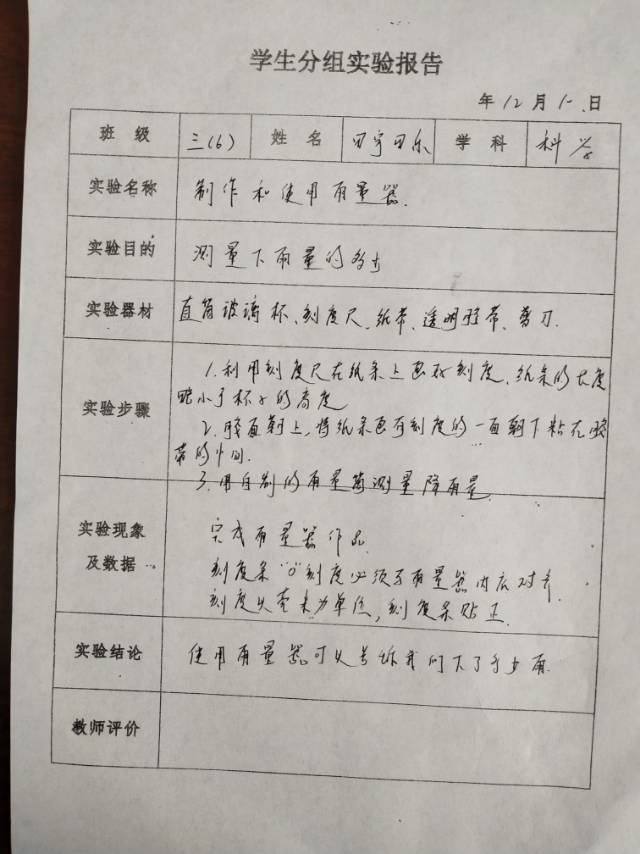 学生分组实验报告
年 12 月 1 日
班 级 三(6) 姓 名 学 科 科学
实验名称 制作和使用雨量器.
实验目的 测量下雨量的多少
实验器材 直筒玻璃杯、刻度尺、纸带、透明胶带、剪刀.
实验步骤
1.利用刻度尺在纸条上画好刻度、纸条的长度
略小于杯子的高度
2.胶面朝上,将纸条画有刻度的一面朝下粘在胶
带的中间.
3.用自制的雨量筒测量降雨量
实验现象
及数据
完成雨量器作品
刻度条"0"刻度必须与雨量器内底对齐.
刻度以毫米为单位,刻度条贴正.
实验结论 使用雨量器可以告诉我们下了多少雨.
教师评价